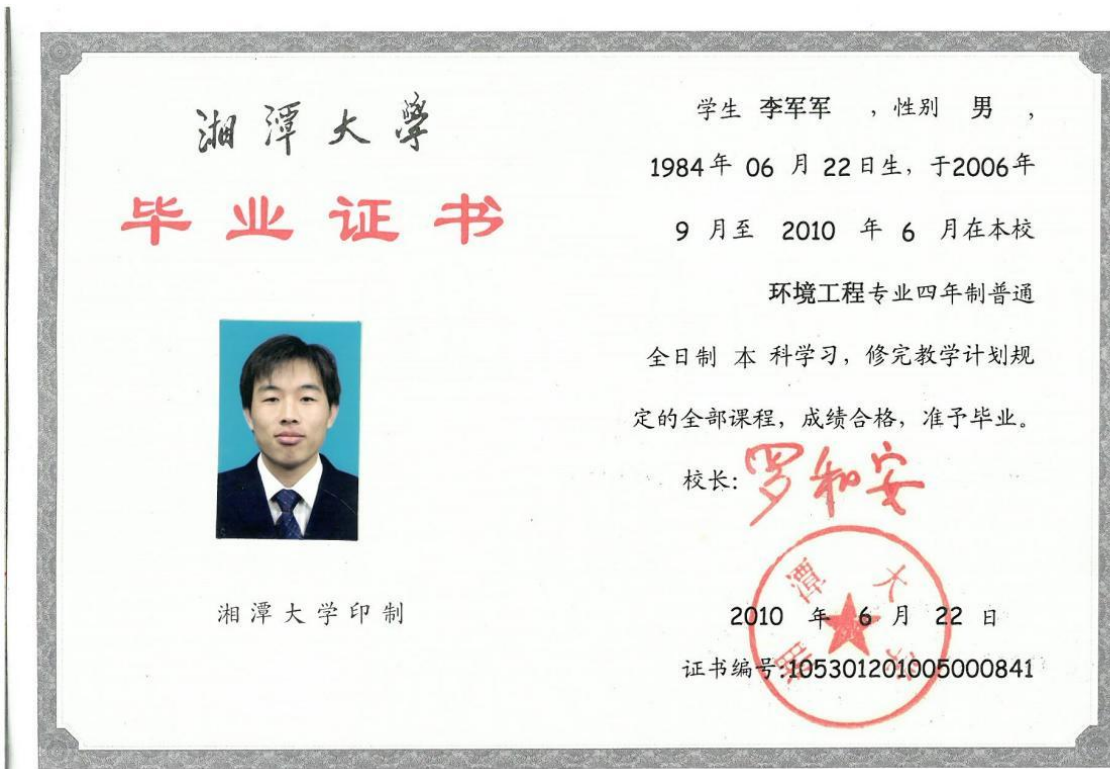 湘潭大學
毕业证书
湘潭大学印制
学生 李军军 ，性别 男 ，
1984年 06 月 22日生，于2006年
9 月至 2010 年 6 月在本校
环境工程专业四年制普通
全日制 本 科学习，修完教学计划规
定的全部课程，成绩合格，准予毕业。
校长：罗和安
湘潭大学
2010 年 6 月 22 日
证书编号:105301201005000841